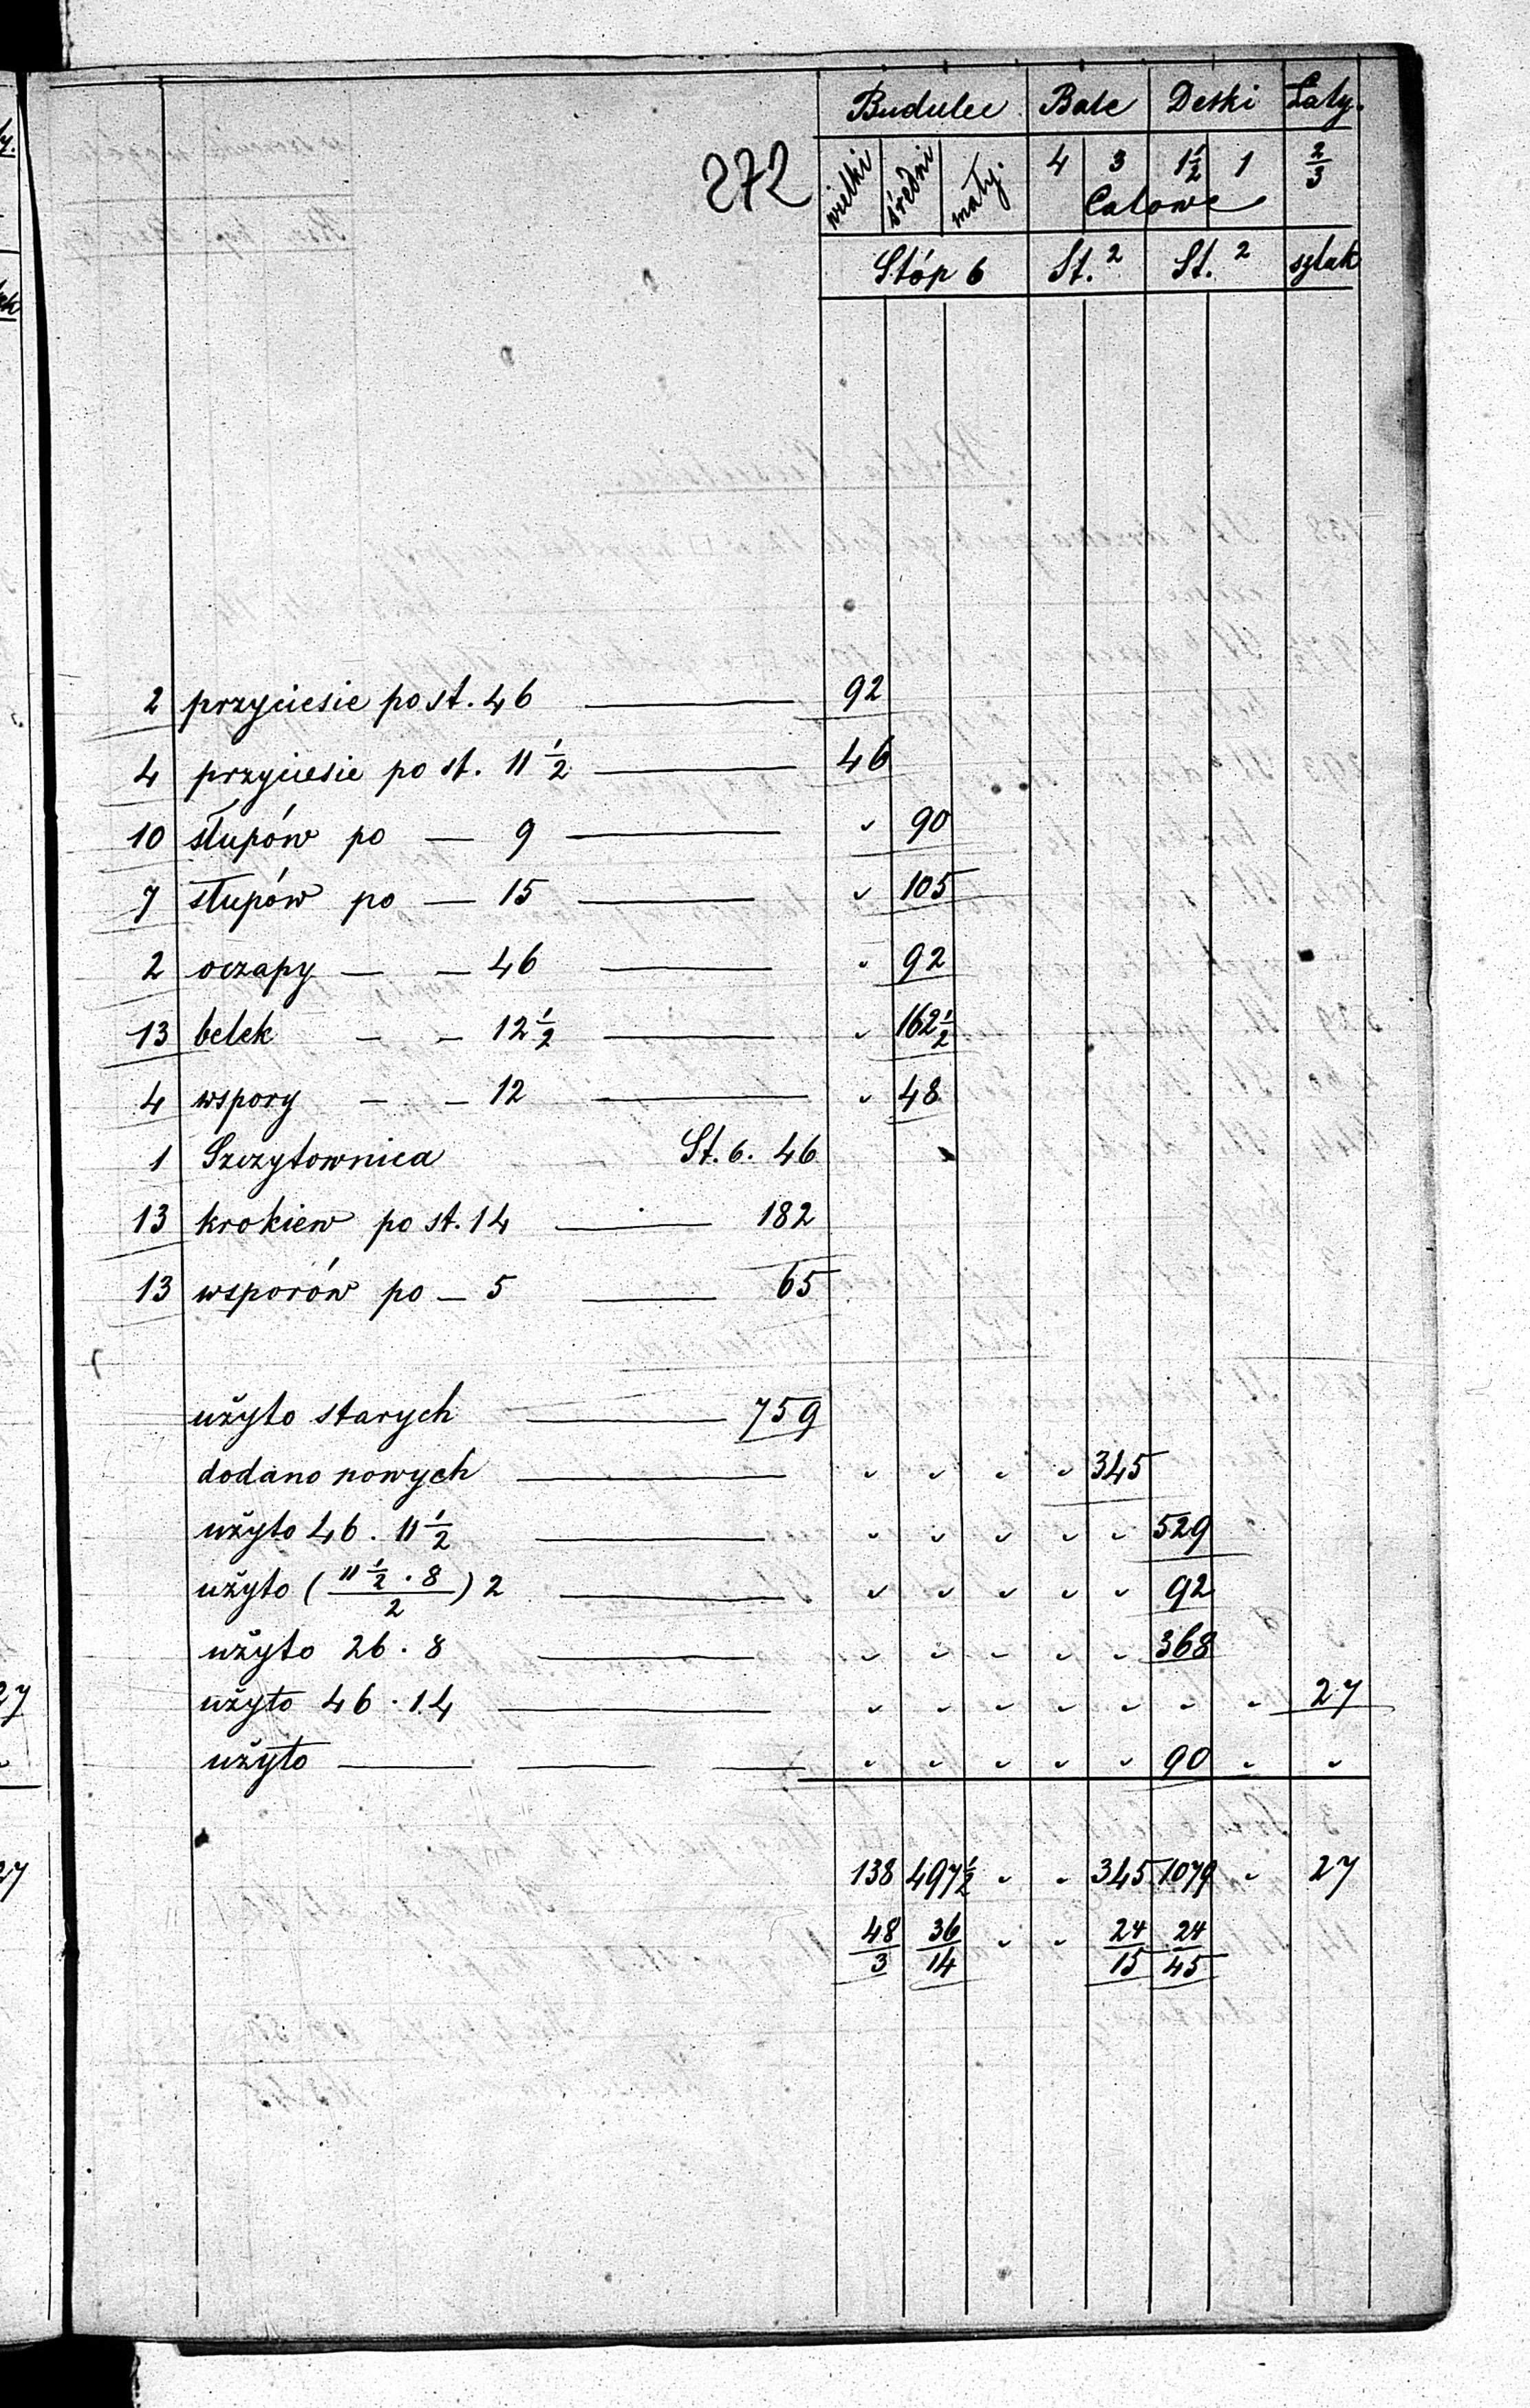 272
Budulec Bale Deski Łaty.
wielki średni mały. 4 3 1½ 1 2/3
Calowe
Stóp 6 St.² St.² sztuk
2 przyciesie po st. 46 — 92
4 przyciesie po st. 11½ — 46
10 słupów po — 9 — „ 90
7 słupów po — 15 — „ 105
2 oczapy — — 46 — „ 92
13 belek — — 12½ — „ 162½
4 wspory — — 12 — „ 48
1 Szczytownica St. 6. 46
13 krokiew po st. 14 — 182
13 wsporów po — 5 — 65
użyto starych — 759
dodano nowych — „ „ „ „ 345
użyto 46 . 11½ — „ „ „ „ „ 529
użyto (11½ . 8 / 2) 2 — „ „ „ „ „ 92
użyto 26 . 8 — „ „ „ „ „ 368
użyto 46 . 14 — „ „ „ „ „ „ „ 27
użyto — — — „ „ „ „ „ 90 „ „
138 497½ „ „ 345 1079 „ 27
48/3 36/14 „ „ 24/15 24/45